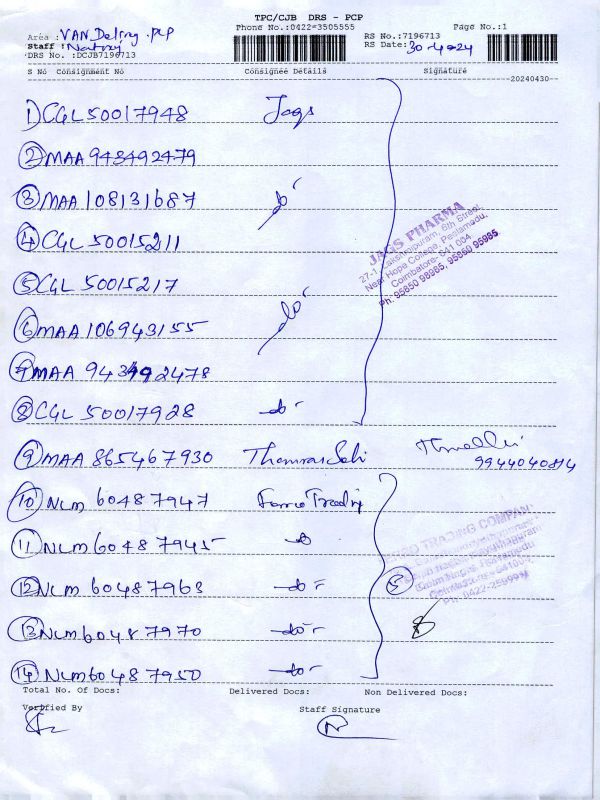 TPC/CJB DRS - PCP
Phone No.:0422-3505555
Page No.:1
Area : VAN Delry .PCP
Staff : Natraj
DRS No. :DCJB7196713
RS No.:7196713
RS Date: 30-4-24
S No Consignment No Consignee Details Signature
20240430
1) CGL 50017948 Jags
2 MAA 943492479
3 MAA 108131687 do
4 CGL 50015211
5 CGL 50015217
6 MAA 106943155 do
7 MAA 943492478
8 CGL 50017928 do
JAGS PHARMA
27-1, Lakshmipuram, 6th Street,
Near Hope College, Peelamedu,
Coimbatore- 641 004.
Ph: 95850 98985, 95850 95985.
9 MAA 865467930
10 NLM 60487947
11 NLM 60487945 do
12 NLM 60487963 do
13 NLM 60487970 do
14 NLM 60487950 do
5
TRADING COMPANY
Total No. Of Docs: Delivered Docs: Non Delivered Docs:
Verified By Staff Signature